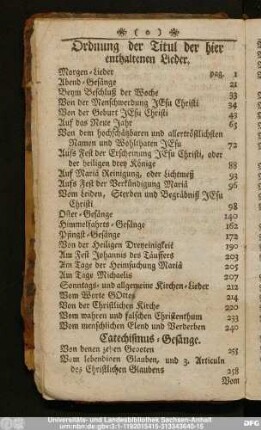 ( o )
Ordnung der Titul der hier
enthaltenen Lieder.
Morgen-Lieder pag. 1
Abend-Gesänge 21
Beym Beschluß der Woche 33
Von der Menschwerdung JEsu Christi 34
Von der Geburt JEsu Christi 43
Auf das Neue Jahr 65
Von dem hochschätzbaren und allertröstlichsten
Namen und Wohlthaten JEsu 72
Aufs Fest der Erscheinung JEsu Christi, oder
der heiligen drey Könige 88
Auf Mariä Reinigung, oder Lichtmeß 93
Aufs Fest der Verkündigung Mariä 96
Vom Leiden, Sterben und Begräbniß JEsu
Christi 98
Oster-Gesänge 140
Himmelfahrts-Gesänge 162
Pfingst-Gesänge 172
Von der Heiligen Dreyeinigkeit 190
Am Fest Johannis des Täuffers 203
Am Tage der Heimsuchung Mariä 205
Am Tage Michaelis 207
Sonntags- und allgemeine Kirchen-Lieder 212
Vom Worte GOttes 214
Von der Christlichen Kirche 220
Vom wahren und falschen Christenthum 233
Vom menschlichen Elend und Verderben 240
Catechismus-Gesänge.
Von denen zehen Geboten 255
Vom lebendigen Glauben, und 3. Articuln
des Christlichen Glaubens 258
Vom
Universitäts- und Landesbibliothek Sachsen-Anhalt
urn:nbn:de:gbv:3:1-1192015415-313543640-15
DFG